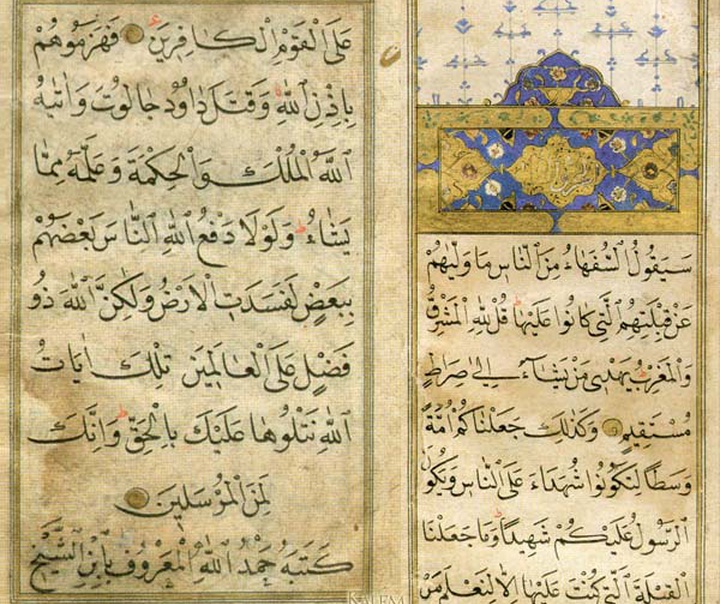 سَيَقُولُ السُّفَهَاءُ مِنَ النَّاسِ مَا وَلّٰيهُمْ
عَنْ قِبْلَتِهِمُ الَّتِي كَانُوا عَلَيْهَا قُلْ لِلّٰهِ الْمَشْرِقُ
وَالْمَغْرِبُ يَهْدِي مَنْ يَشَاءُ اِلٰى صِرَاطٍ
مُسْتَقِيمٍ وَكَذٰلِكَ جَعَلْنَاكُمْ اُمَّةً
وَسَطًا لِتَكُونُوا شُهَدَاءَ عَلَى النَّاسِ وَيَكُونَ
الرَّسُولُ عَلَيْكُمْ شَهِيدًا وَمَا جَعَلْنَا
الْقِبْلَةَ الَّتِي كُنْتَ عَلَيْهَا اِلَّا لِنَعْلَمَ مَنْ
عَلَى الْقَوْمِ الْكَافِرِينَ فَهَزَمُوهُمْ
بِاِذْنِ اللّٰهِ وَقَتَلَ دَاوُدُ جَالُوتَ وَاٰتٰيهُ
اللّٰهُ الْمُلْكَ وَالْحِكْمَةَ وَعَلَّمَهُ مِمَّا
يَشَاءُ وَلَوْلَا دَفْعُ اللّٰهِ النَّاسَ بَعْضَهُمْ
بِبَعْضٍ لَفَسَدَتِ الْاَرْضُ وَلٰكِنَّ اللّٰهَ ذُو
فَضْلٍ عَلَى الْعَالَمِينَ تِلْكَ اٰيَاتُ
اللّٰهِ نَتْلُوهَا عَلَيْكَ بِالْحَقِّ وَاِنَّكَ
لَمِنَ الْمُرْسَلِينَ
كَتَبَهُ حَمْدُ اللّٰهِ الْمَعْرُوفُ بِابْنِ الشَّيْخِ
KALEM